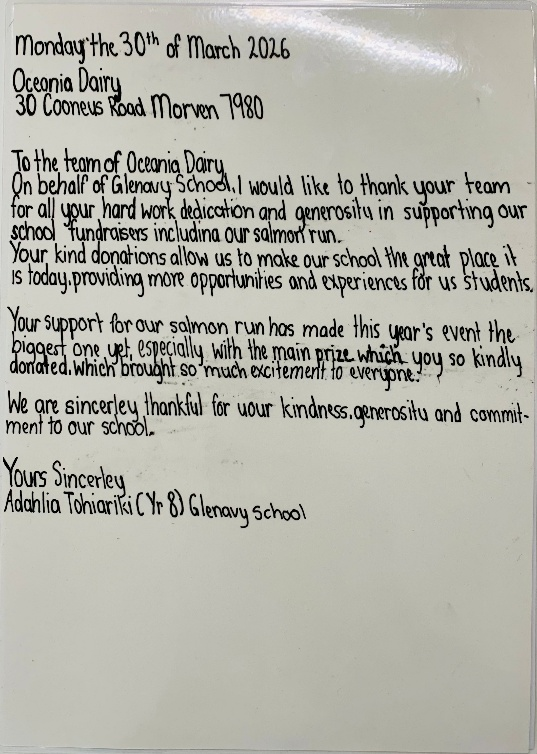 Monday the 30th of March 2026
Oceania Dairy
30 Cooneus Road Morven 7980
To the team of Oceania Dairy
On behalf of Glenavy School, I would like to thank your team
for all your hard work dedication and generosity in supporting our
school fundraisers including our salmon run.
Your kind donations allow us to make our school the great place it
is today, providing more opportunities and experiences for us students.
Your support for our salmon run has made this year's event the
biggest one yet, especially with the main prize which you so kindly
donated, which brought so much excitement to everyone.
We are sincerley thankful for your kindness, generosity and commit-
ment to our school.
Yours Sincerley
Adahlia Tohiariki (Yr 8) Glenavy School